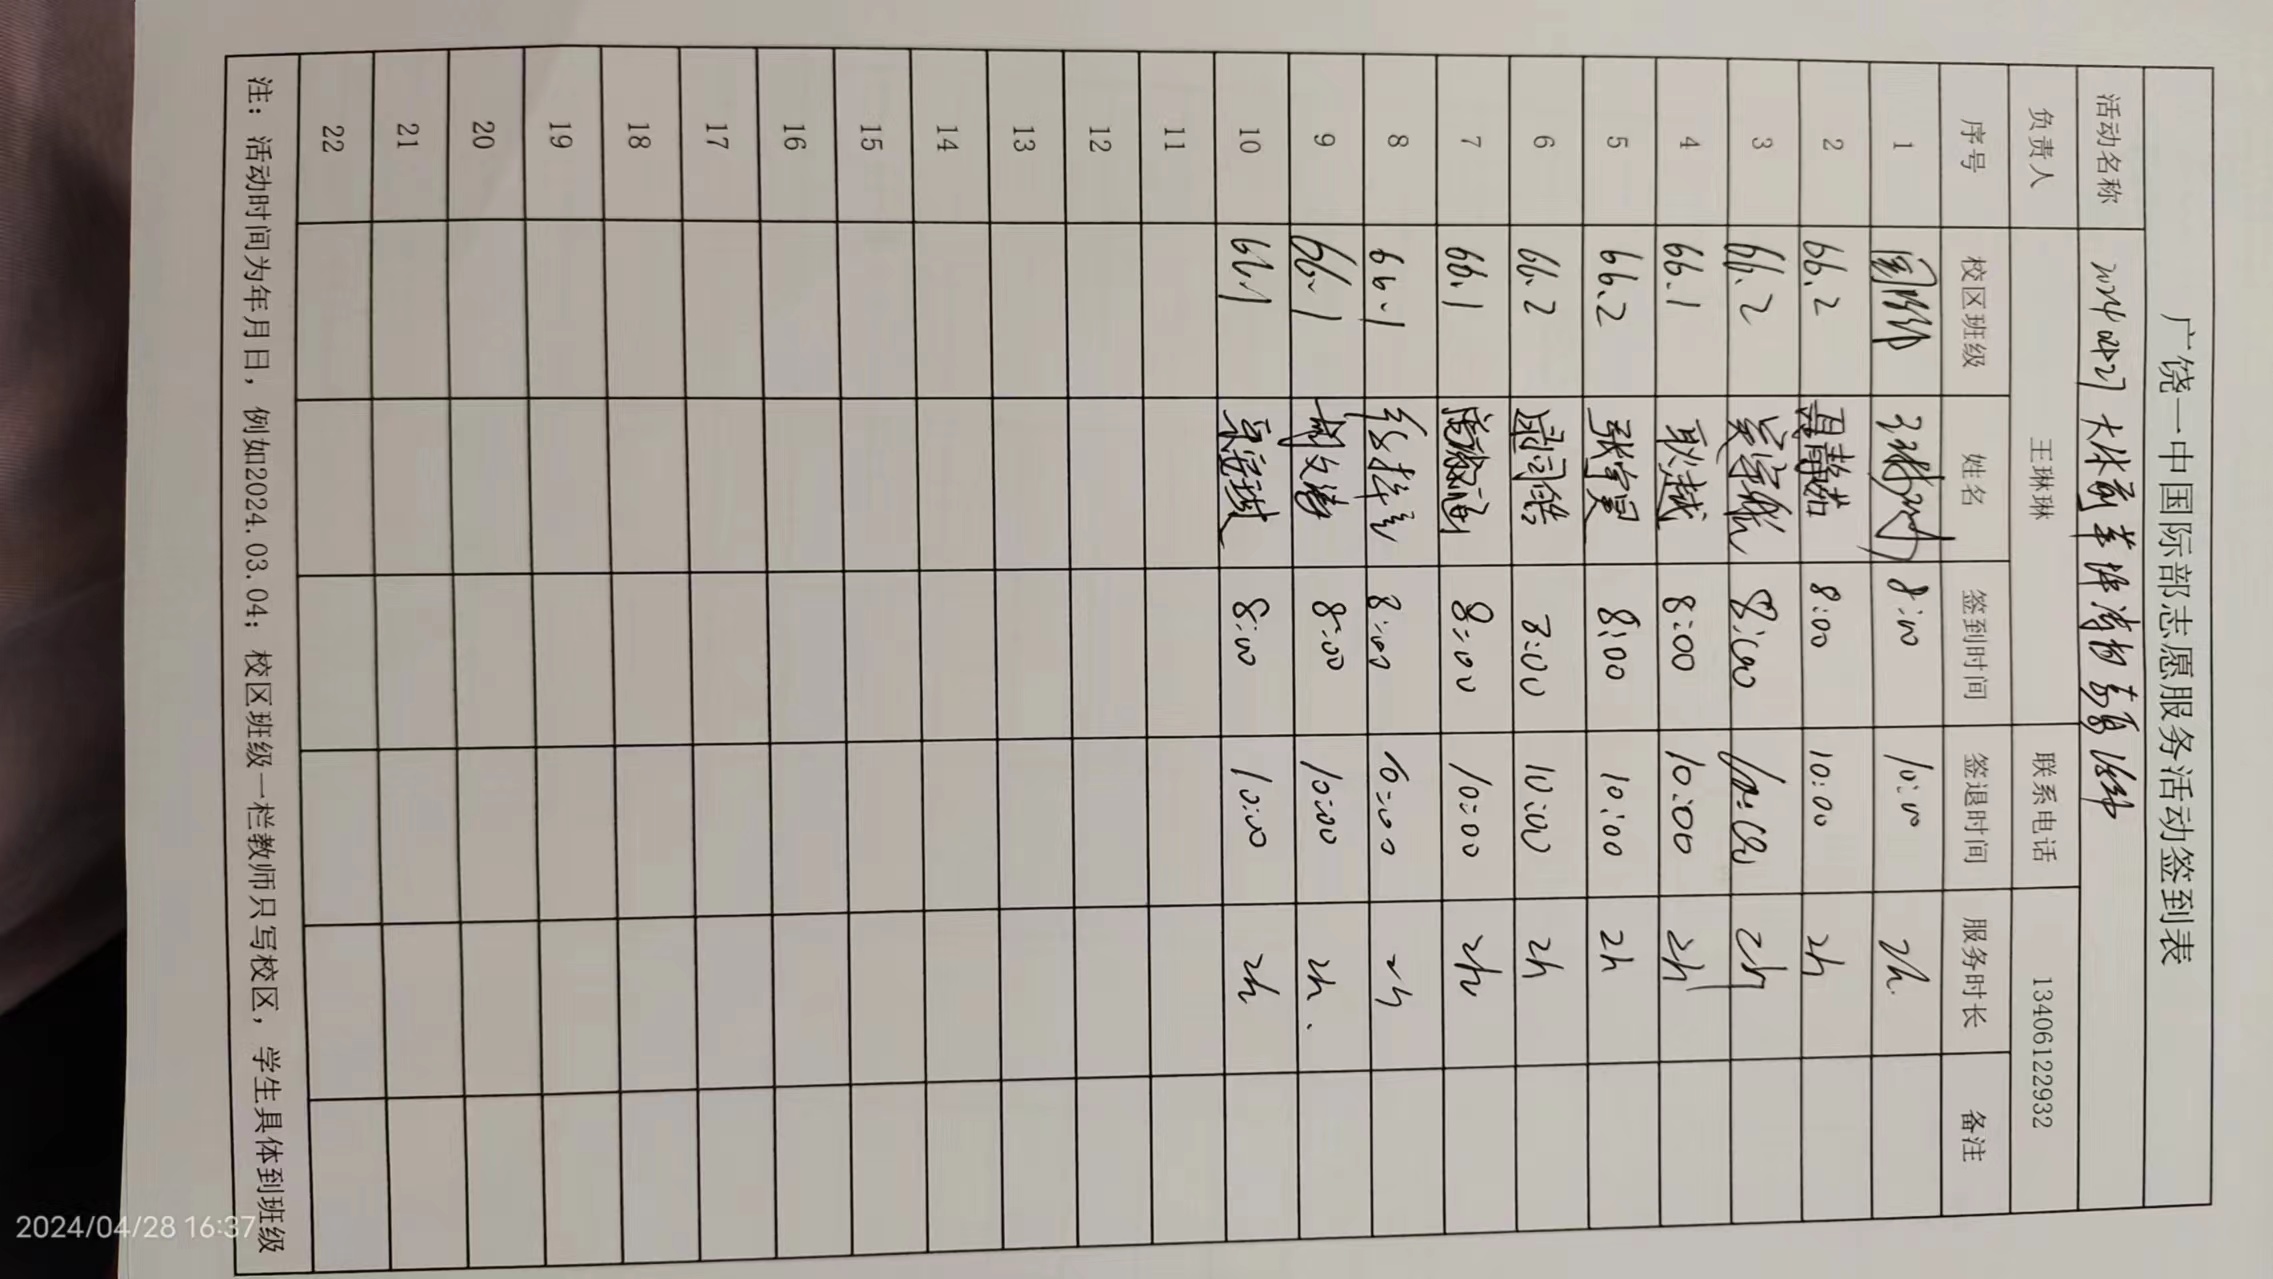 广饶一中国际部志愿服务活动签到表
活动名称 20240427
负责人 王琳琳 联系电话 13406122932
序号 校区班级 姓名 签到时间 签退时间 服务时长 备注
1 国际部 王琳琳 8:00 10:00 2h.
2 66.2 8:00 10:00 2h
3 66.2 8:00 10:00 2h
4 66.1 耿越 8:00 10:00 2h
5 66.2 8:00 10:00 2h
6 66.2 8:00 10:00 2h
7 66.1 8:00 10:00 2h
8 66.1 8:00 10:00 2h
9 66.1 8:00 10:00 2h
10 66.1 8:00 10:00 2h
11
12
13
14
15
16
17
18
19
20
21
22
注：活动时间为年月日，例如2024.03.04；校区班级一栏教师只写校区，学生具体到班级
2024/04/28 16:37